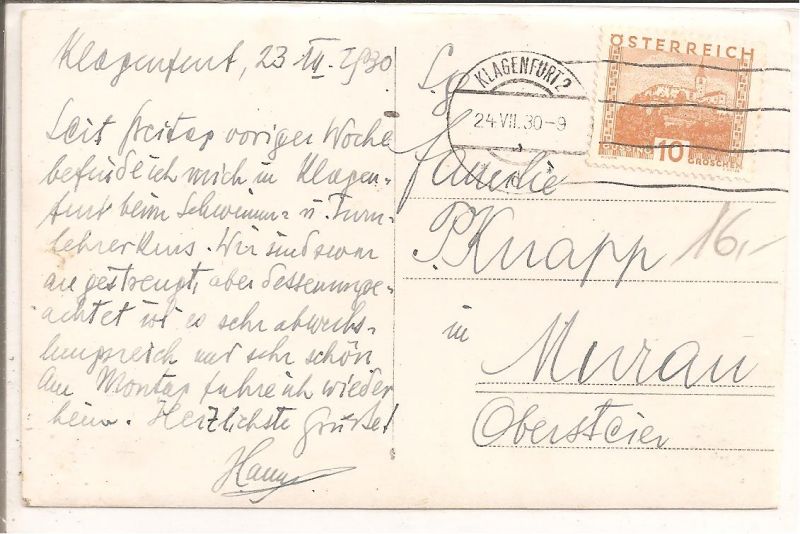 Klagenfurt, 23 VII. 1930
Seit Freitag voriger Woche
befinde ich mich in Klagen-
furt beim Schwimm- u. Turn-
lehrerkurs. Wir sind zwar
angestrengt, aber dessenunge-
achtet ist es sehr abwechs-
lungsreich und sehr schön
Am Montag fahre ich wieder
heim. Herzlichste Grüße!
ÖSTERREICH
10
GROSCHEN
KLAGENFURT 2
24.VII.30-9
Familie
P. Knapp
16,-
in
Murau
Obersteier